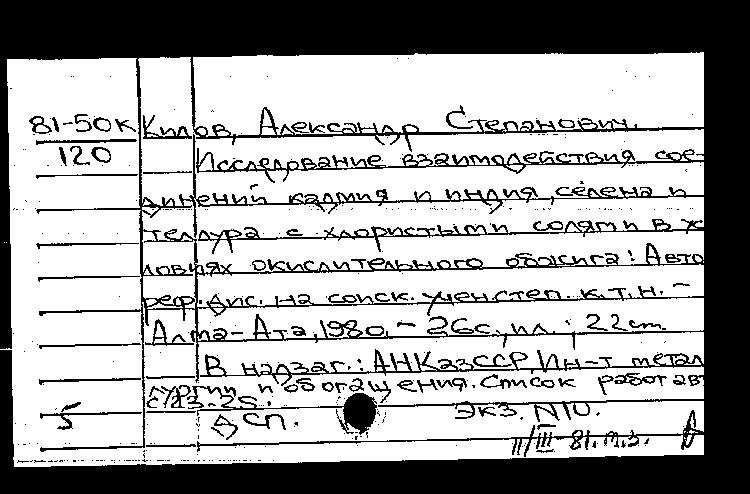 81-50к Килов, Александр Степанович.
120 Исследование взаимодействия сое-
динений кадмия и индия, селена и
теллура с хлористыми солями в ус
ловиях окислительного обжига: Авто
реф. дис. на соиск. учен. степ. к.т.н. -
Алма-Ата, 1980. - 26с., ил.; 22см.
В надзаг.: АН КазССР, Ин-т метал
лургии и обогащения. Список работ авт
с. 23-25.
5 сп. Экз. N10.
II/III-81.